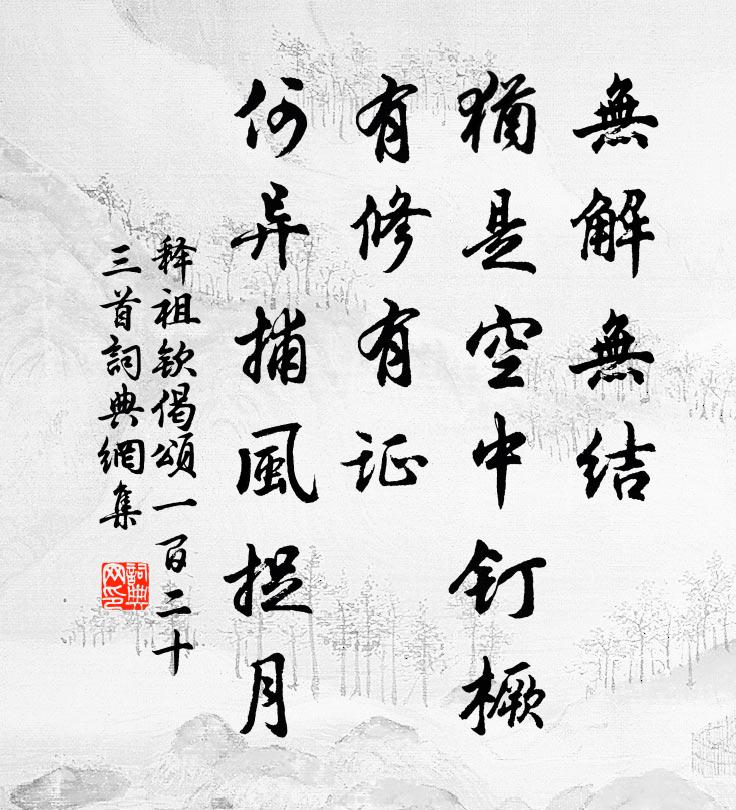 無解無结
猶是空中钉橛
有修有证
何异捕風捉月
释祖钦偈頌一百二十
三首詞典網集
詞典
网印